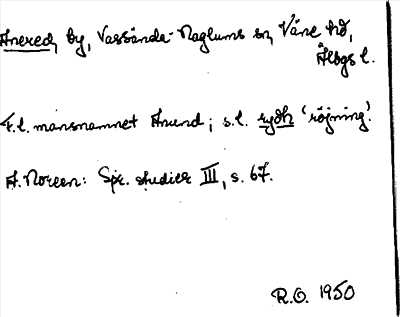 Anered, by, Vassända-Naglums sn, Väne hd,
Älvbgs l.
F.l. mansnamnet Anund; s.l. rydh 'röjning'.
A. Noreen: Spr. studier III, s. 67.
R.O. 1950